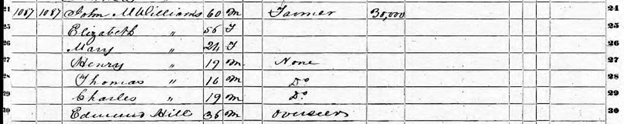 21 1087 1087 John M Williams 60 M Farmer 30,000 24
Elizabeth " 55 F 25
Mary " 24 F 26
27 Henry " 17 M None 27
28 Thomas " 16 M Do 28
29 Charles " 19 M Do 29
30 Edmund Hill 36 M Overseer 30